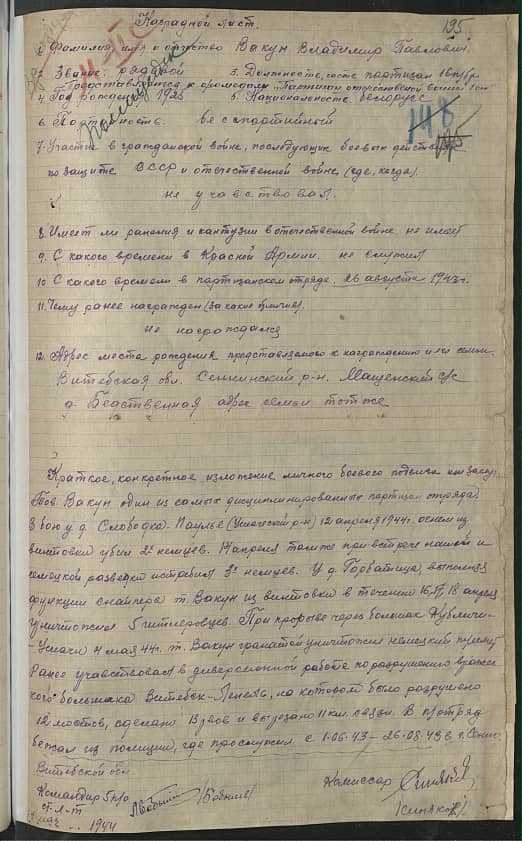 195.
Наградной лист.
1. Фамилия имя и отчество Вакун Владимир Павлович.
2. Звание: рядовой 3. Должность, часть партизан
Представляется к ордену "Партизан отечественной войны I ст."
4. Год рождения 1923 5. Национальность белорусс
6. Партийность. беспартийный
148
7. Участие в гражданской войне, последующих боевых действиях
по защите СССР и отечественной войне (где, когда).
не участвовал.
8. Имеет ли ранения и кантузии в отечественной войне. не имеет
9. С какого времени в Красной Армии. не служил
10. С какого времени в партизанском отряде. 26 августа 1943 г.
11. Чему ранее награжден (за какие отличия).
не награждался
12. Адрес места рождения представляемого к награждению и его семьи.
Витебская обл. Сеннинский р-н. Мащенский с/с
д. Бедственная адрес семьи тотже
Краткое, конкретное изложение личного боевого подвига или заслуг.
Тов. Вакун один из самых дисциплинированных партизан отряда.
В бою у д. Слободка-Паулье (Ушачский р-н) 12 апреля 1944 г. огнем из
винтовки убил 2х немцев. апреля также при встрече нашей и
немецкой разведки истребил 3х немцев. У д. Горбатица выполняя
функции снайпера т. Вакун из винтовки в течении 16, 17, 18 апреля
уничтожил 5 гитлеровцев. При прорыве через большак Кубличи-
-Ушачи 4 мая 44 г. т. Вакун гранатой уничтожил немецкий
Ранее учавствовал в диверсионной работе по разрушению вражес-
кого большака Витебск-Лепель, на котором было разрушено
12 мостов, сделано взвов и вырезано 11 км. связи. В п/отряд
бежал из полиции, где прослужил с 1-06-43 - 26-08-43 в г. Сенно
Витебской обл.
Командир 5 п/о
ст. л-т
мая 1944
Комиссар
(Синяков)